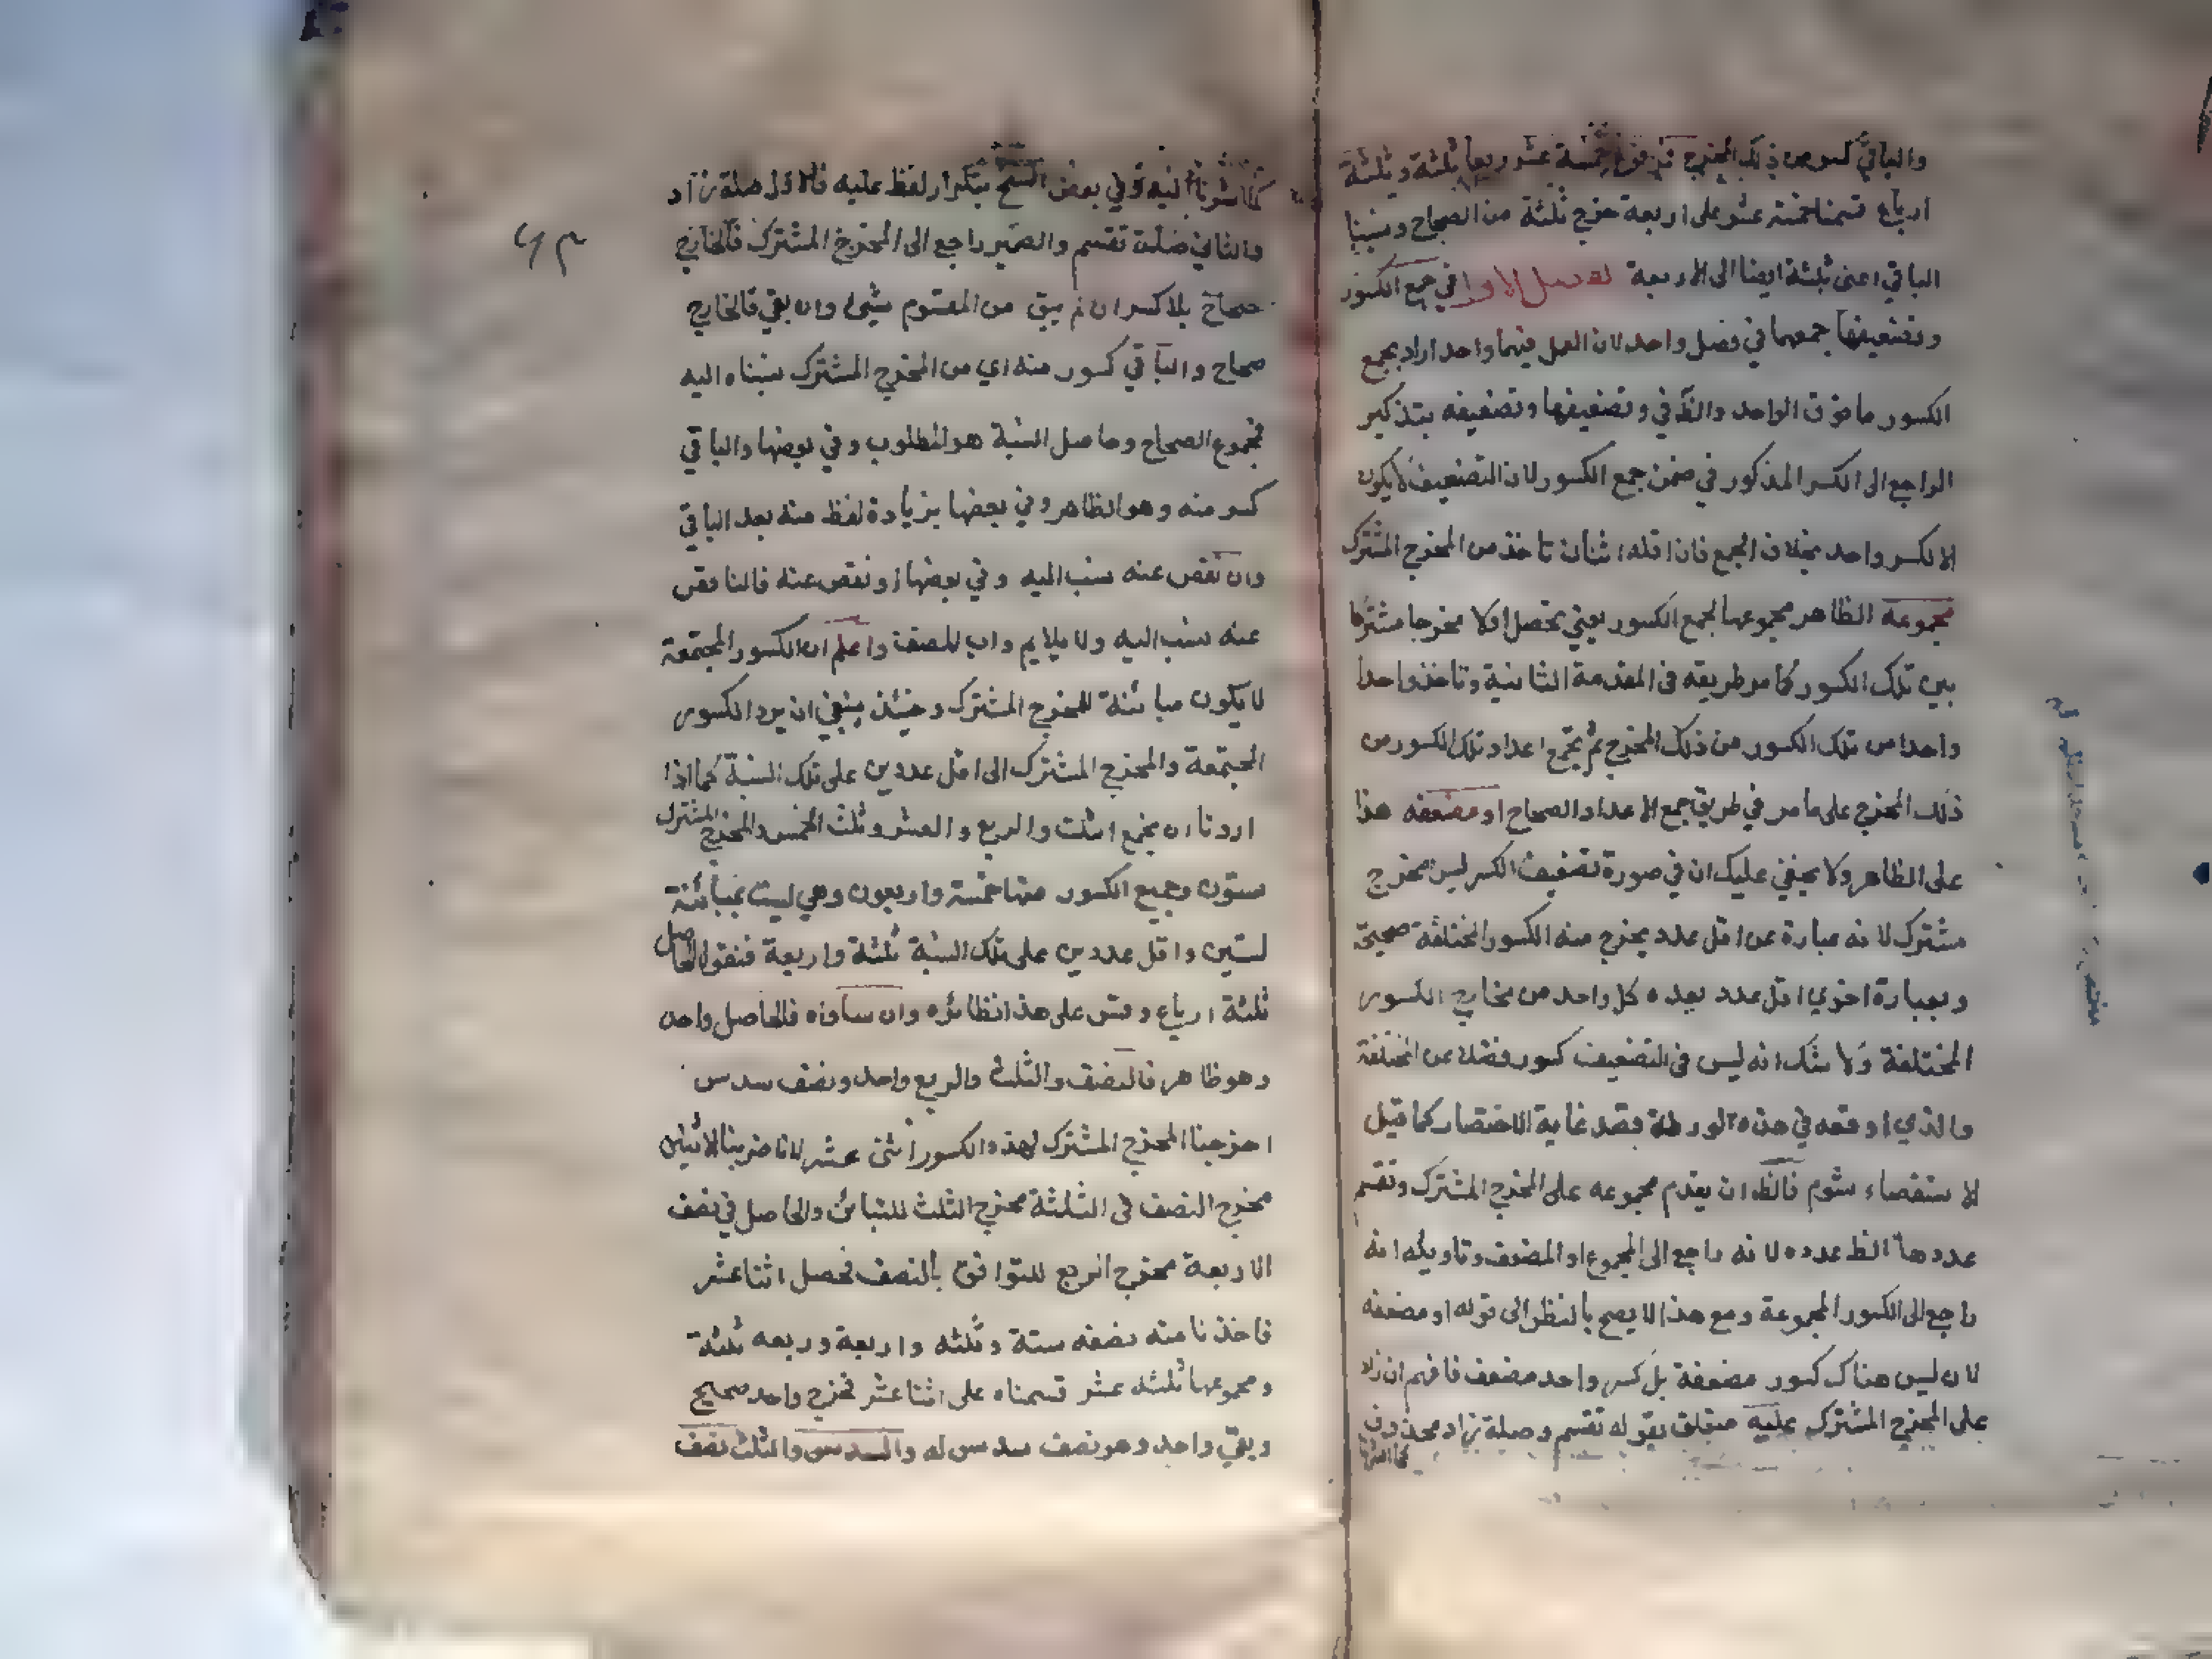 والباقي كسر من ذلك المخرج فمرفوع خمسة عشر ربعا ثلثة وثلثة
ارباع قسمنا خمسة عشر على اربعة خرج ثلثة من الصحاح ونسبنا
الباقي اعنى ثلثة ايضا الى الاربعة الفصل الاول في جمع الكسور
وتضعيفها جمعهما في فصل واحد لان العمل فيهما واحد اراد بجمع
الكسور ما فوق الواحد والظ في وتضعيفها وتضعيفه بتذكير
الراجع الى الكسر المذكور في ضمن جمع الكسور لان التضعيف لا يكون
الا لكسر واحد بخلاف الجمع فان اقله اثنان تاخذ من المخرج المشترك
مجموعه الظاهر مجموعها لجمع الكسور يعني تحصل اولا مخرجا مشتركا
بين تلك الكسور كما مر طريقه في المقدمة الثانية وتاخذ واحدا
واحدا من تلك الكسور من ذلك المخرج ثم تجمع اعداد تلك الكسور من
ذلك المخرج على ما مر في طريق جمع الاعداد الصحاح او مضعفه هذا
على الظاهر ولا يخفي عليك ان في صورة تضعيف الكسر ليس مخرج
مشترك لانه عبارة عن اقل عدد يخرج منه الكسور المختلفة صحيحة
وبعبارة اخري اقل عدد يعده كل واحد من مخارج الكسور
المختلفة ولا شك انه ليس في التضعيف كسور فضلا عن المختلفة
والذي اوقعه في هذه الورطة قصد غاية الاختصار كما قيل
لاستقصاء شوم فالظ ان يقدم مجموعه على المخرج المشترك وتقسم
عددها الظ عدده لانه راجع الى المجموع او المضعف وتاويله انه
راجع الى الكسور المجموعة ومع هذا لا يصح بالنظر الى قوله او مضعفه
لان ليس هناك كسور مضعفة بل كسر واحد مضعف فافهم ان زاد
على المخرج المشترك عليه متعلق بقوله تقسم وصلة زاد محذوف
كما اشرنا
كما اشرنا اليه وفي بعض النسخ بتكرار لفظ عليه فالاول صلة زاد
والثاني صلة تقسم والضمير راجع الى المخرج المشترك فالخارج
صحاح بلا كسر ان لم يبق من المقسوم شيئ وان بقي فالخارج
صحاح والباقي كسور منه اي من المخرج المشترك نسبناه اليه
فمجموع الصحاح وحاصل النسبة هو المطلوب وفي بعضها والباقي
كسر منه وهو الظاهر وفي بعضها بزيادة لفظ منه بعد الباقي
وان نقص عنه نسب اليه وفي بعضها او نقص عنه فالناقص
عنه نسب اليه ولا يلايم داب المصنف واعلم ان الكسور المجتمعة
لا يكون مباينة للمخرج المشترك وحينئذ ينبغي ان يرد الكسور
المجتمعة والمخرج المشترك الى اقل عددين على تلك النسبة كما اذا
اردنا ان نجمع الثلث والربع والعشر وثلث الخمس والمخرج المشترك
ستون وجميع الكسور منها خمسة واربعون وهي ليست بمباينة
لستين واقل عددين على تلك النسبة ثلثة واربعة فنقول الحاصل
ثلثة ارباع وقس على هذا نظائره وان ساواه فالحاصل واحد
وهو ظاهر فالنصف والثلث والربع واحد ونصف سدس
اخرجنا المخرج المشترك لهذه الكسور اثنى عشر لانا ضربنا الاثنين
مخرج النصف في الثلثة مخرج الثلث للتباين والحاصل في نصف
الاربعة مخرج الربع للتوافق بالنصف فحصل اثنا عشر
فاخذنا منه نصفه ستة وثلثه واربعة وربعه ثلثة
ومجموعها ثلثه عشر قسمناه على اثنا عشر فخرج واحد صحيح
وبقي واحد وهو نصف سدس له والسدس والثلث نصف